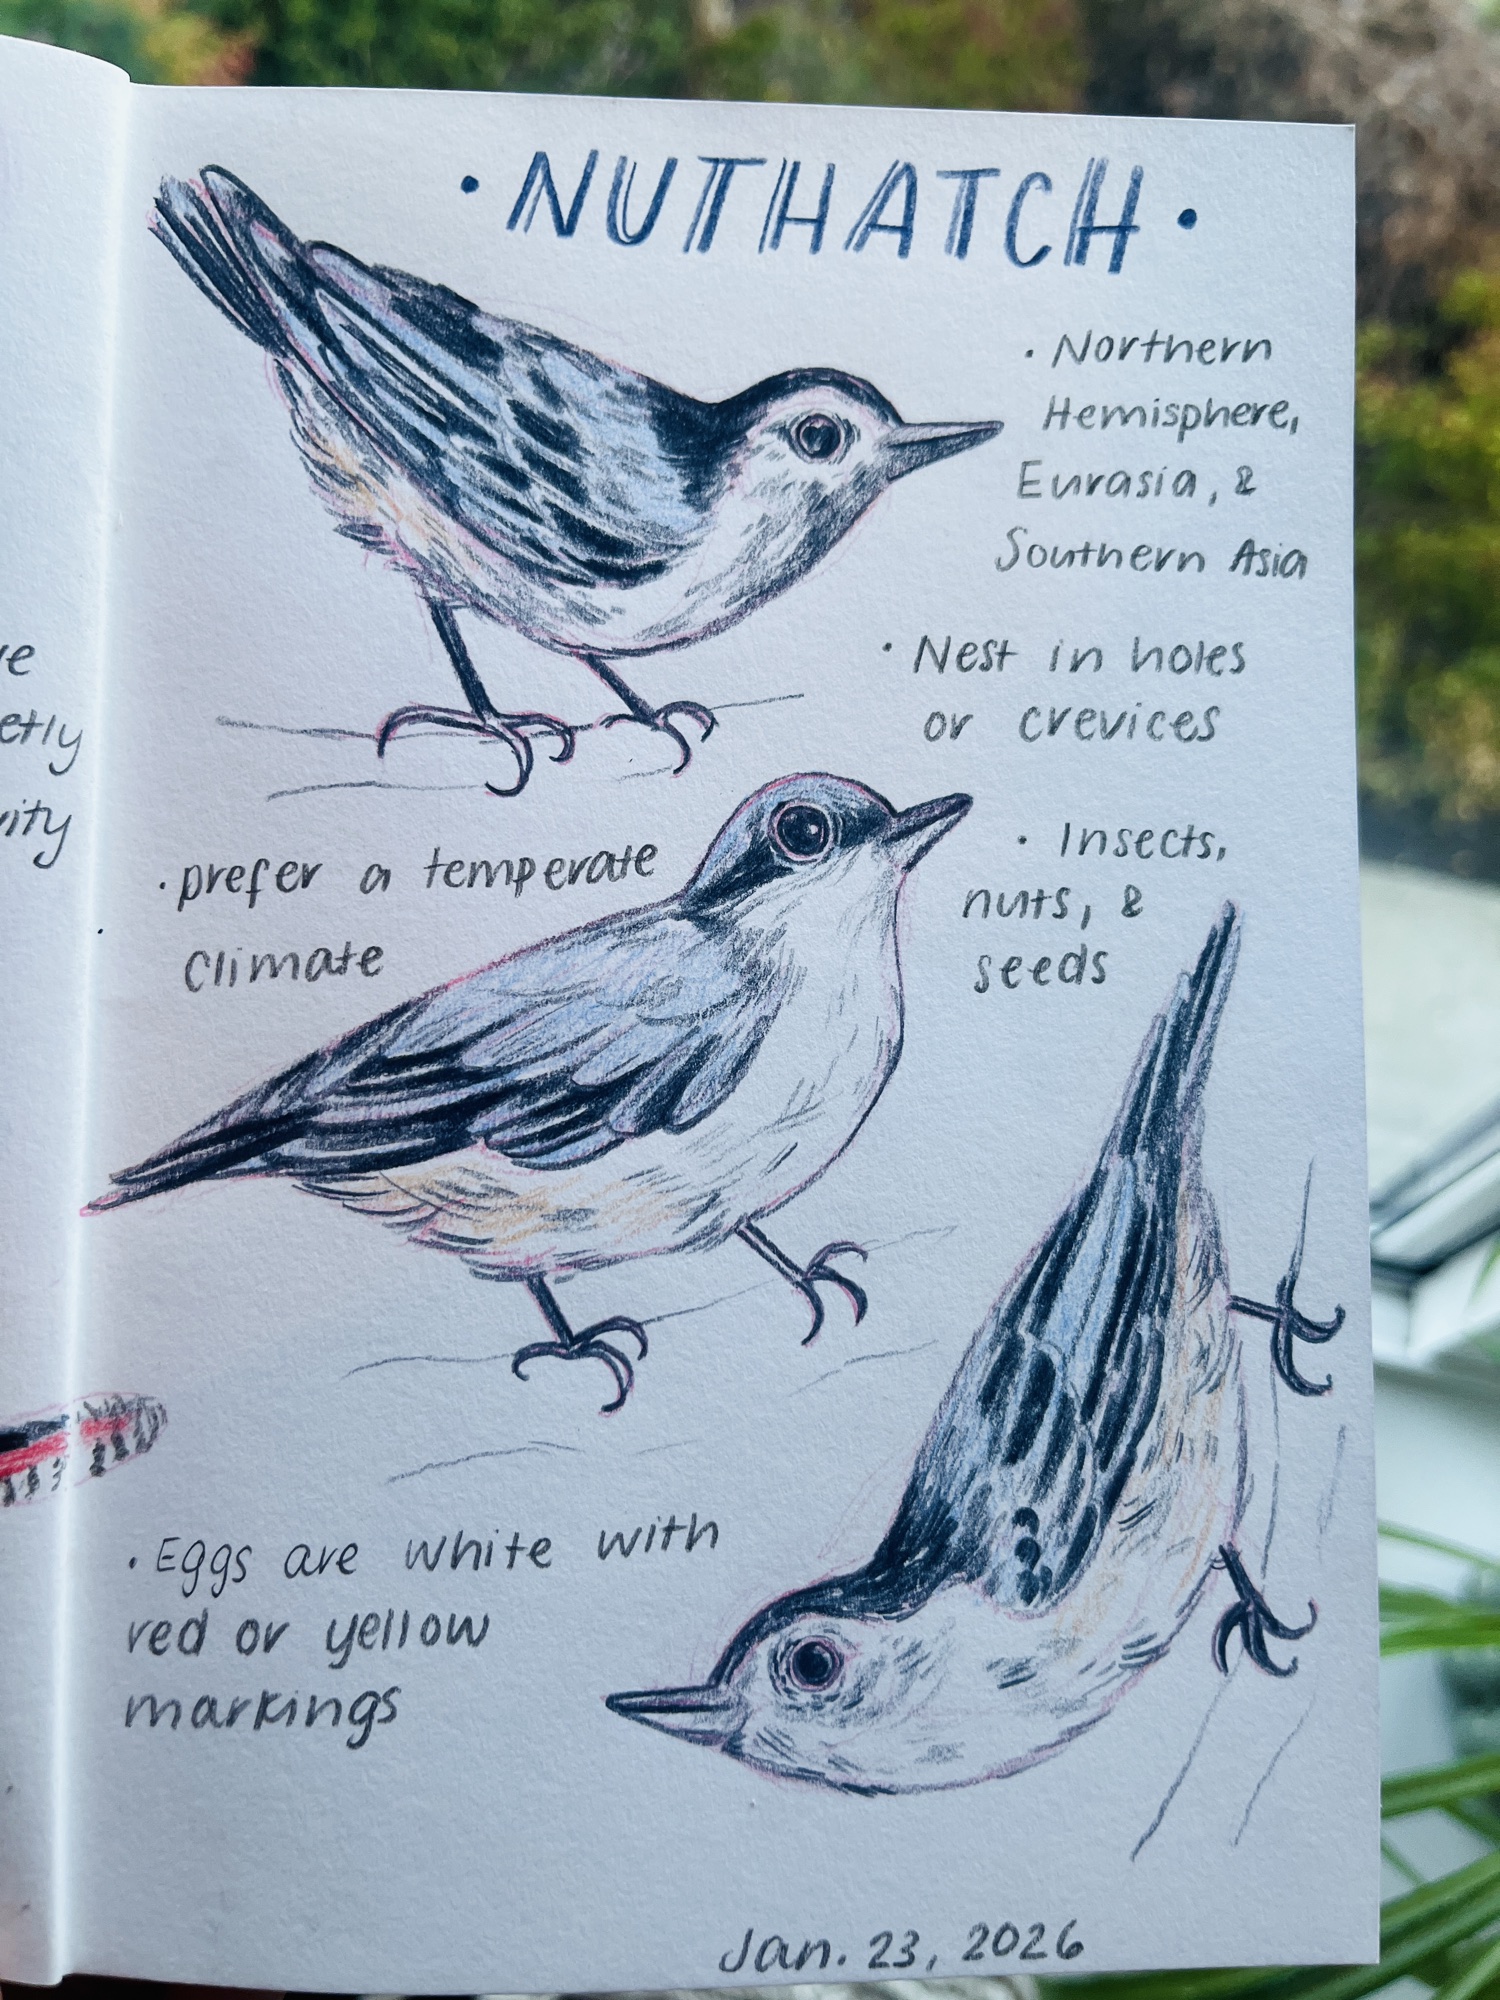 · NUTHATCH ·
· Northern
Hemisphere,
Eurasia, &
Southern Asia
· Nest in holes
or crevices
· Insects,
nuts, &
seeds
· prefer a temperate
climate
· Eggs are white with
red or yellow
markings
Jan. 23, 2026